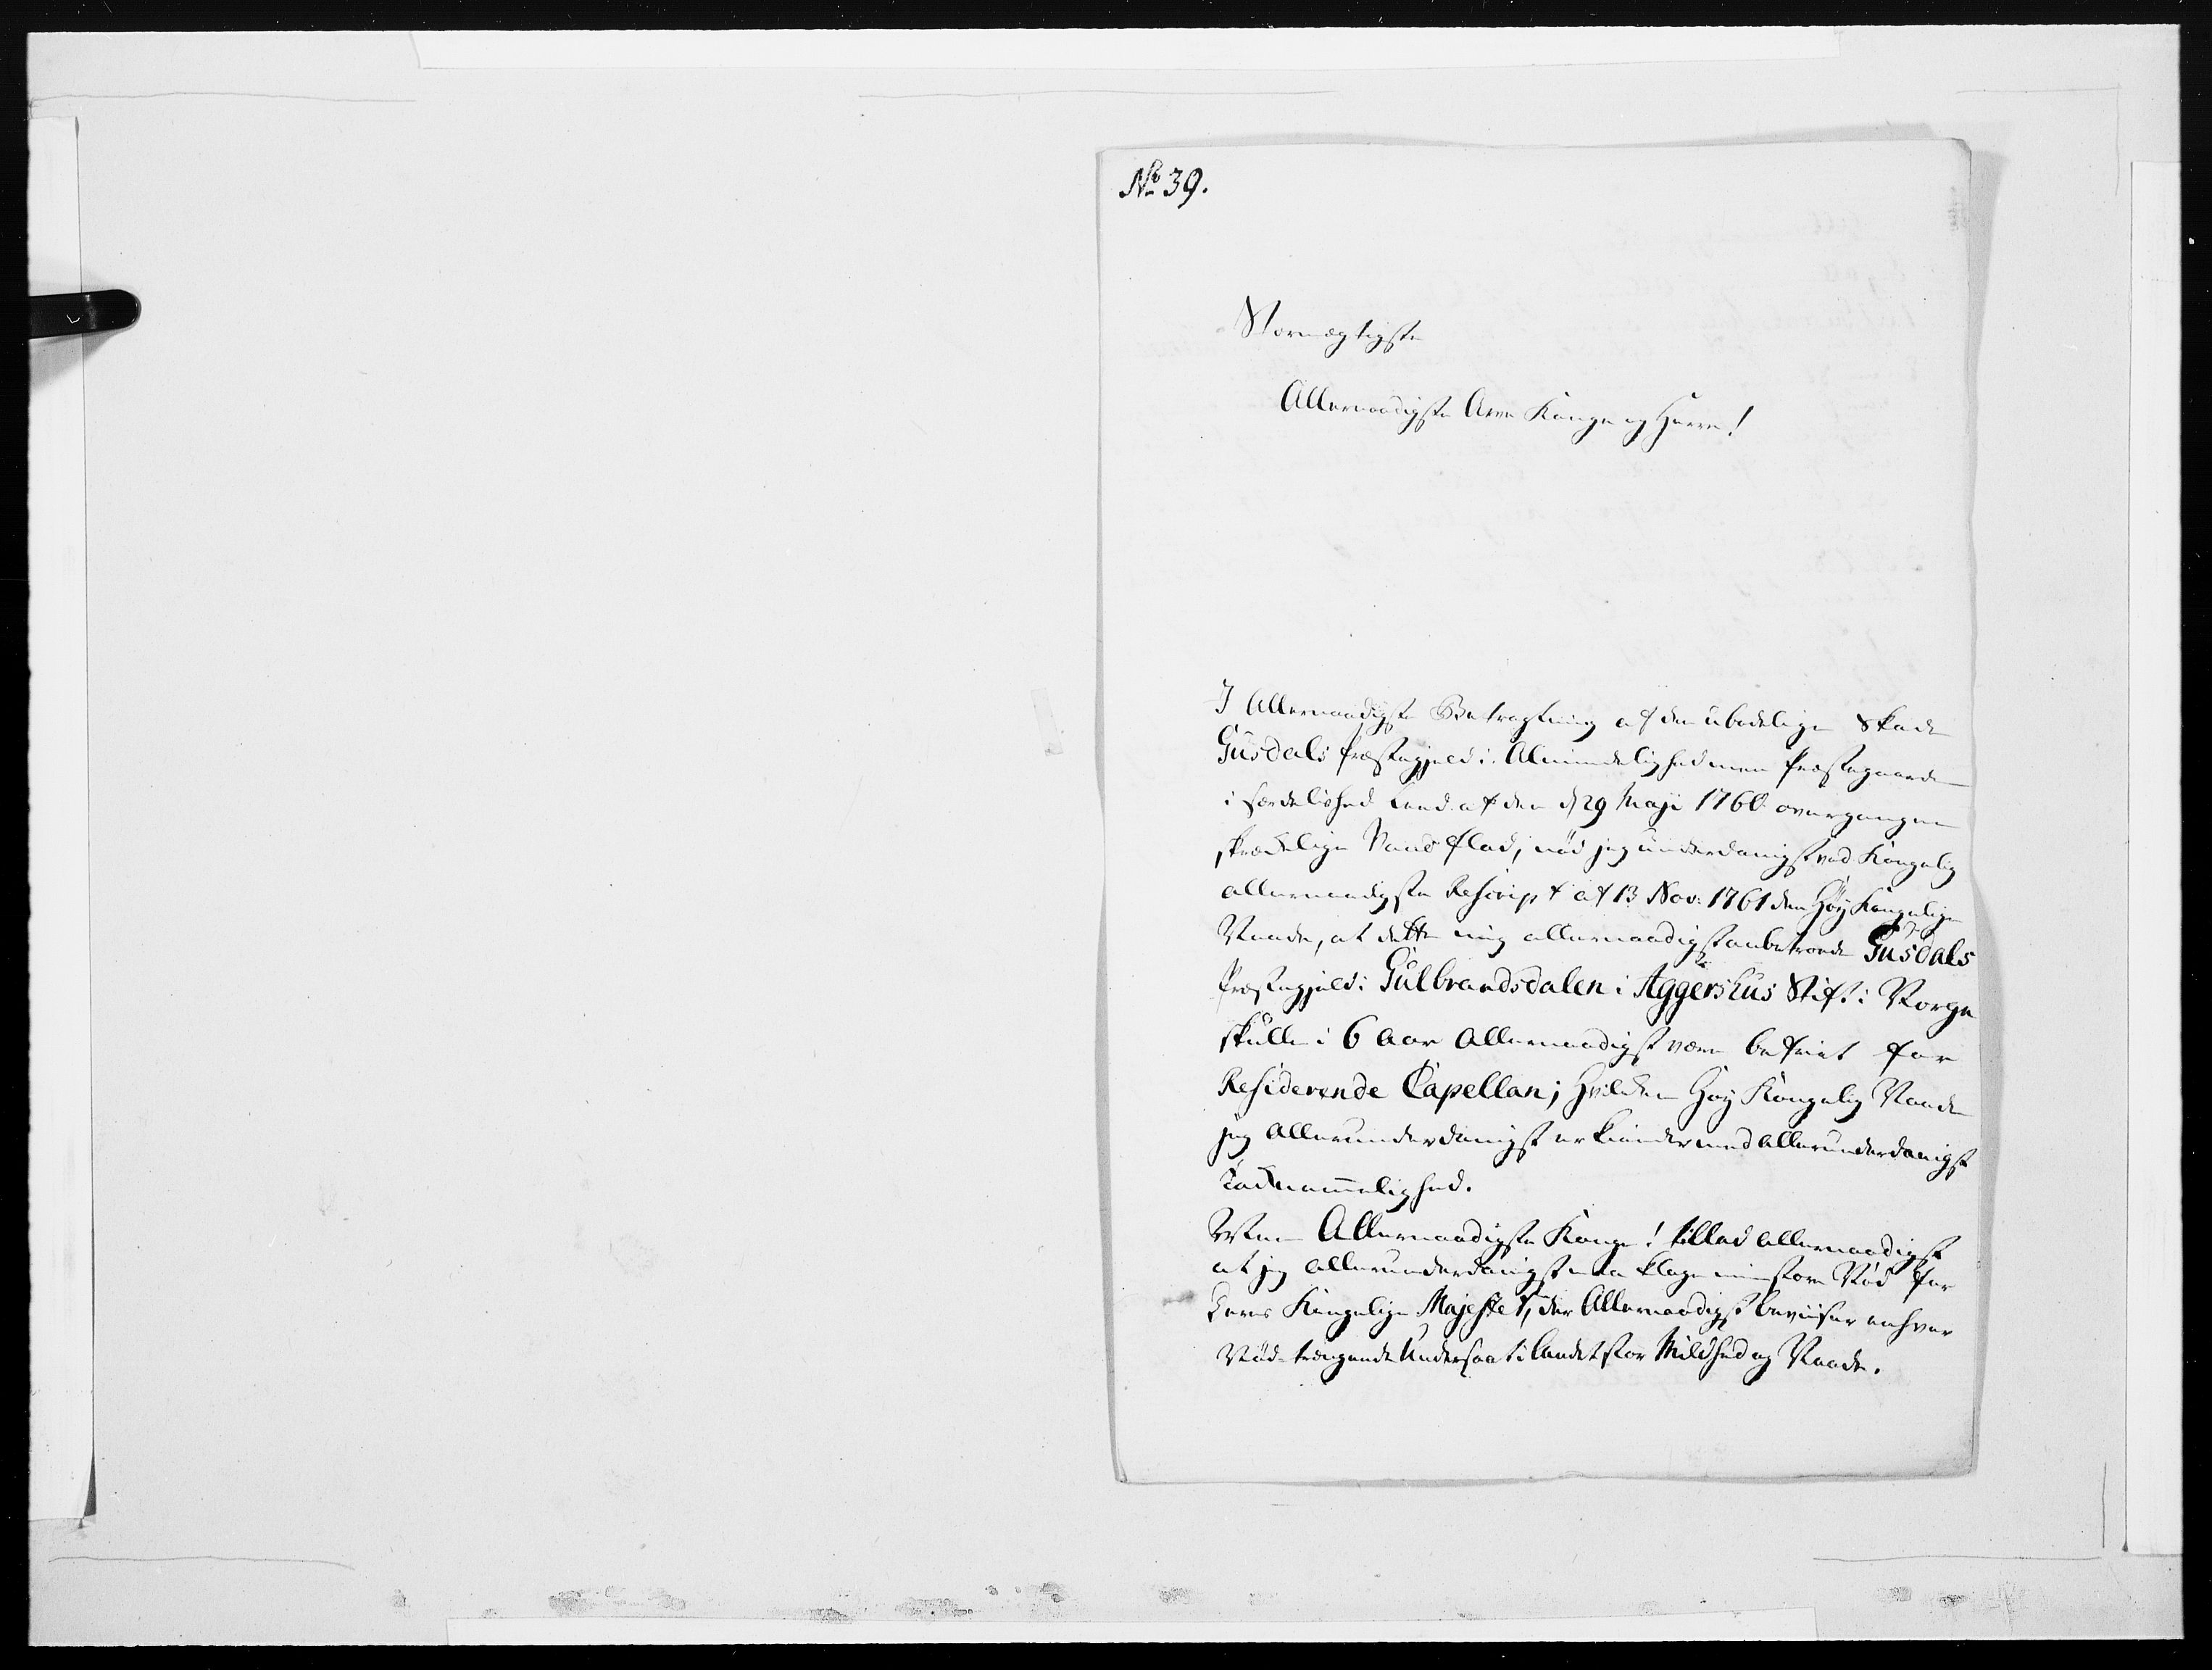 No 39.
Stormægtigste
Allernaadigste Arve Konge og Herre!
I Allernaadigste Betragtning af den ubodelige Skade
Gusdals Præstegield i Almindelighed men Præstegaarden
i særdelished leed af den d 29 Maji 1760 overgangen
skrækelige Vand flod, nød jeg underdanigst ved Kongelig
allernaadigste Rescript af 13 Nov: 1761 den Høy Kongelige
Naade, at dette mig allernaadigst anbetroede Gusdals
Præstegield i Gulbrandsdalen i Aggershus Stift i Norge
skulle i 6 Aar Allernaadigst være befriet for
Residerende Capellan; hvilken Høy Kongelig Naade
jeg Allerunderdanigst erkiender med allerunderdanigst
Taknemmelighed.
Men Allernaadigste Konge! tillad allernaadigst
at jeg allerunderdanigst maa klage min store Nød for
Deres Kongelige Majestet, der Allernaadigst beviiser enhver
Nød-trængende Undersaat i Landet stor Mildhed og Naade.